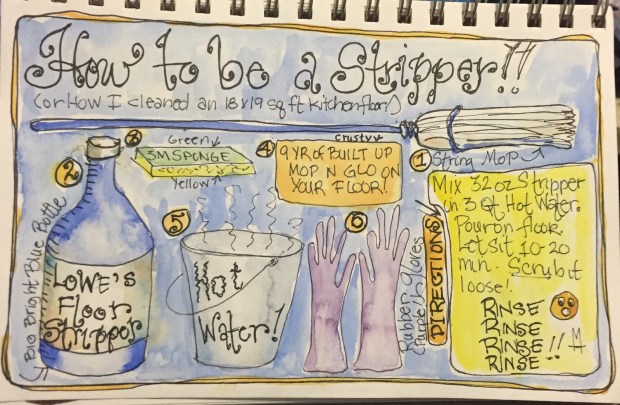 How to be a Stripper!!
(or How I cleaned an 18x19 sq ft Kitchen floor!)
① String Mop
②
Big Bright Blue Bottle
LOWE'S
Floor
Stripper
③
Green
3M SPONGE
Yellow
④
crusty
9 YR of BUILT UP
MOP N GLO ON
YOUR FLOOR!
⑤
Hot
Water!
⑥
Rubber Gloves
DIRECTIONS
Mix 32 oz Stripper
in 3 Qt Hot Water.
Pour on floor.
Let sit 10-20
min. Scrub it
loose!
RINSE
RINSE
RINSE
RINSE!!